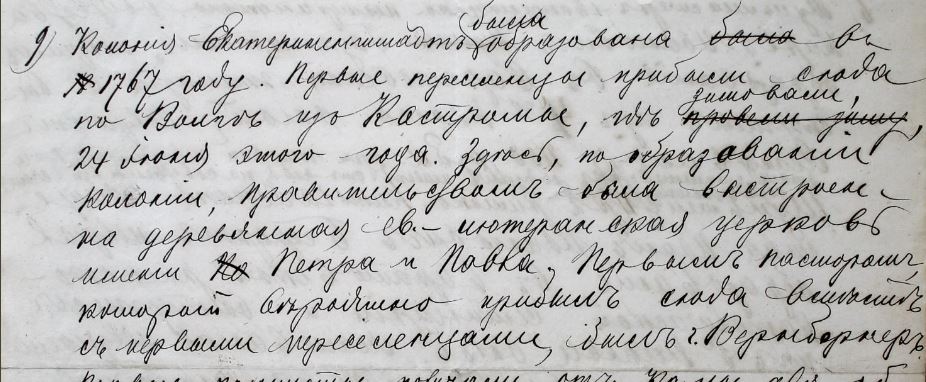 9) Колонія Екатериненштадтъ была образована было въ
1767 году. Первые переселенцы прибыли сюда
по Волгѣ изъ Костромы, гдѣ провели зиму зимовали,
24 Іюля этого года. Здѣсь, по образованіи
колоніи, правительствомъ была выстроен-
на деревянная ев.-лютеранская церковь
имени Петра и Павла. Первымъ пасторомъ,
который вѣроятно прибылъ сюда вмѣстѣ
съ первыми переселенцами, былъ г. Вернборнеръ